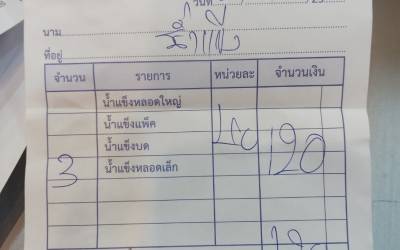 วันที่
นาม น้ำแข็ง
ที่อยู่
จำนวน รายการ หน่วยละ จำนวนเงิน
น้ำแข็งหลอดใหญ่
น้ำแข็งแพ็ค
น้ำแข็งบด
3 น้ำแข็งหลอดเล็ก 40 120